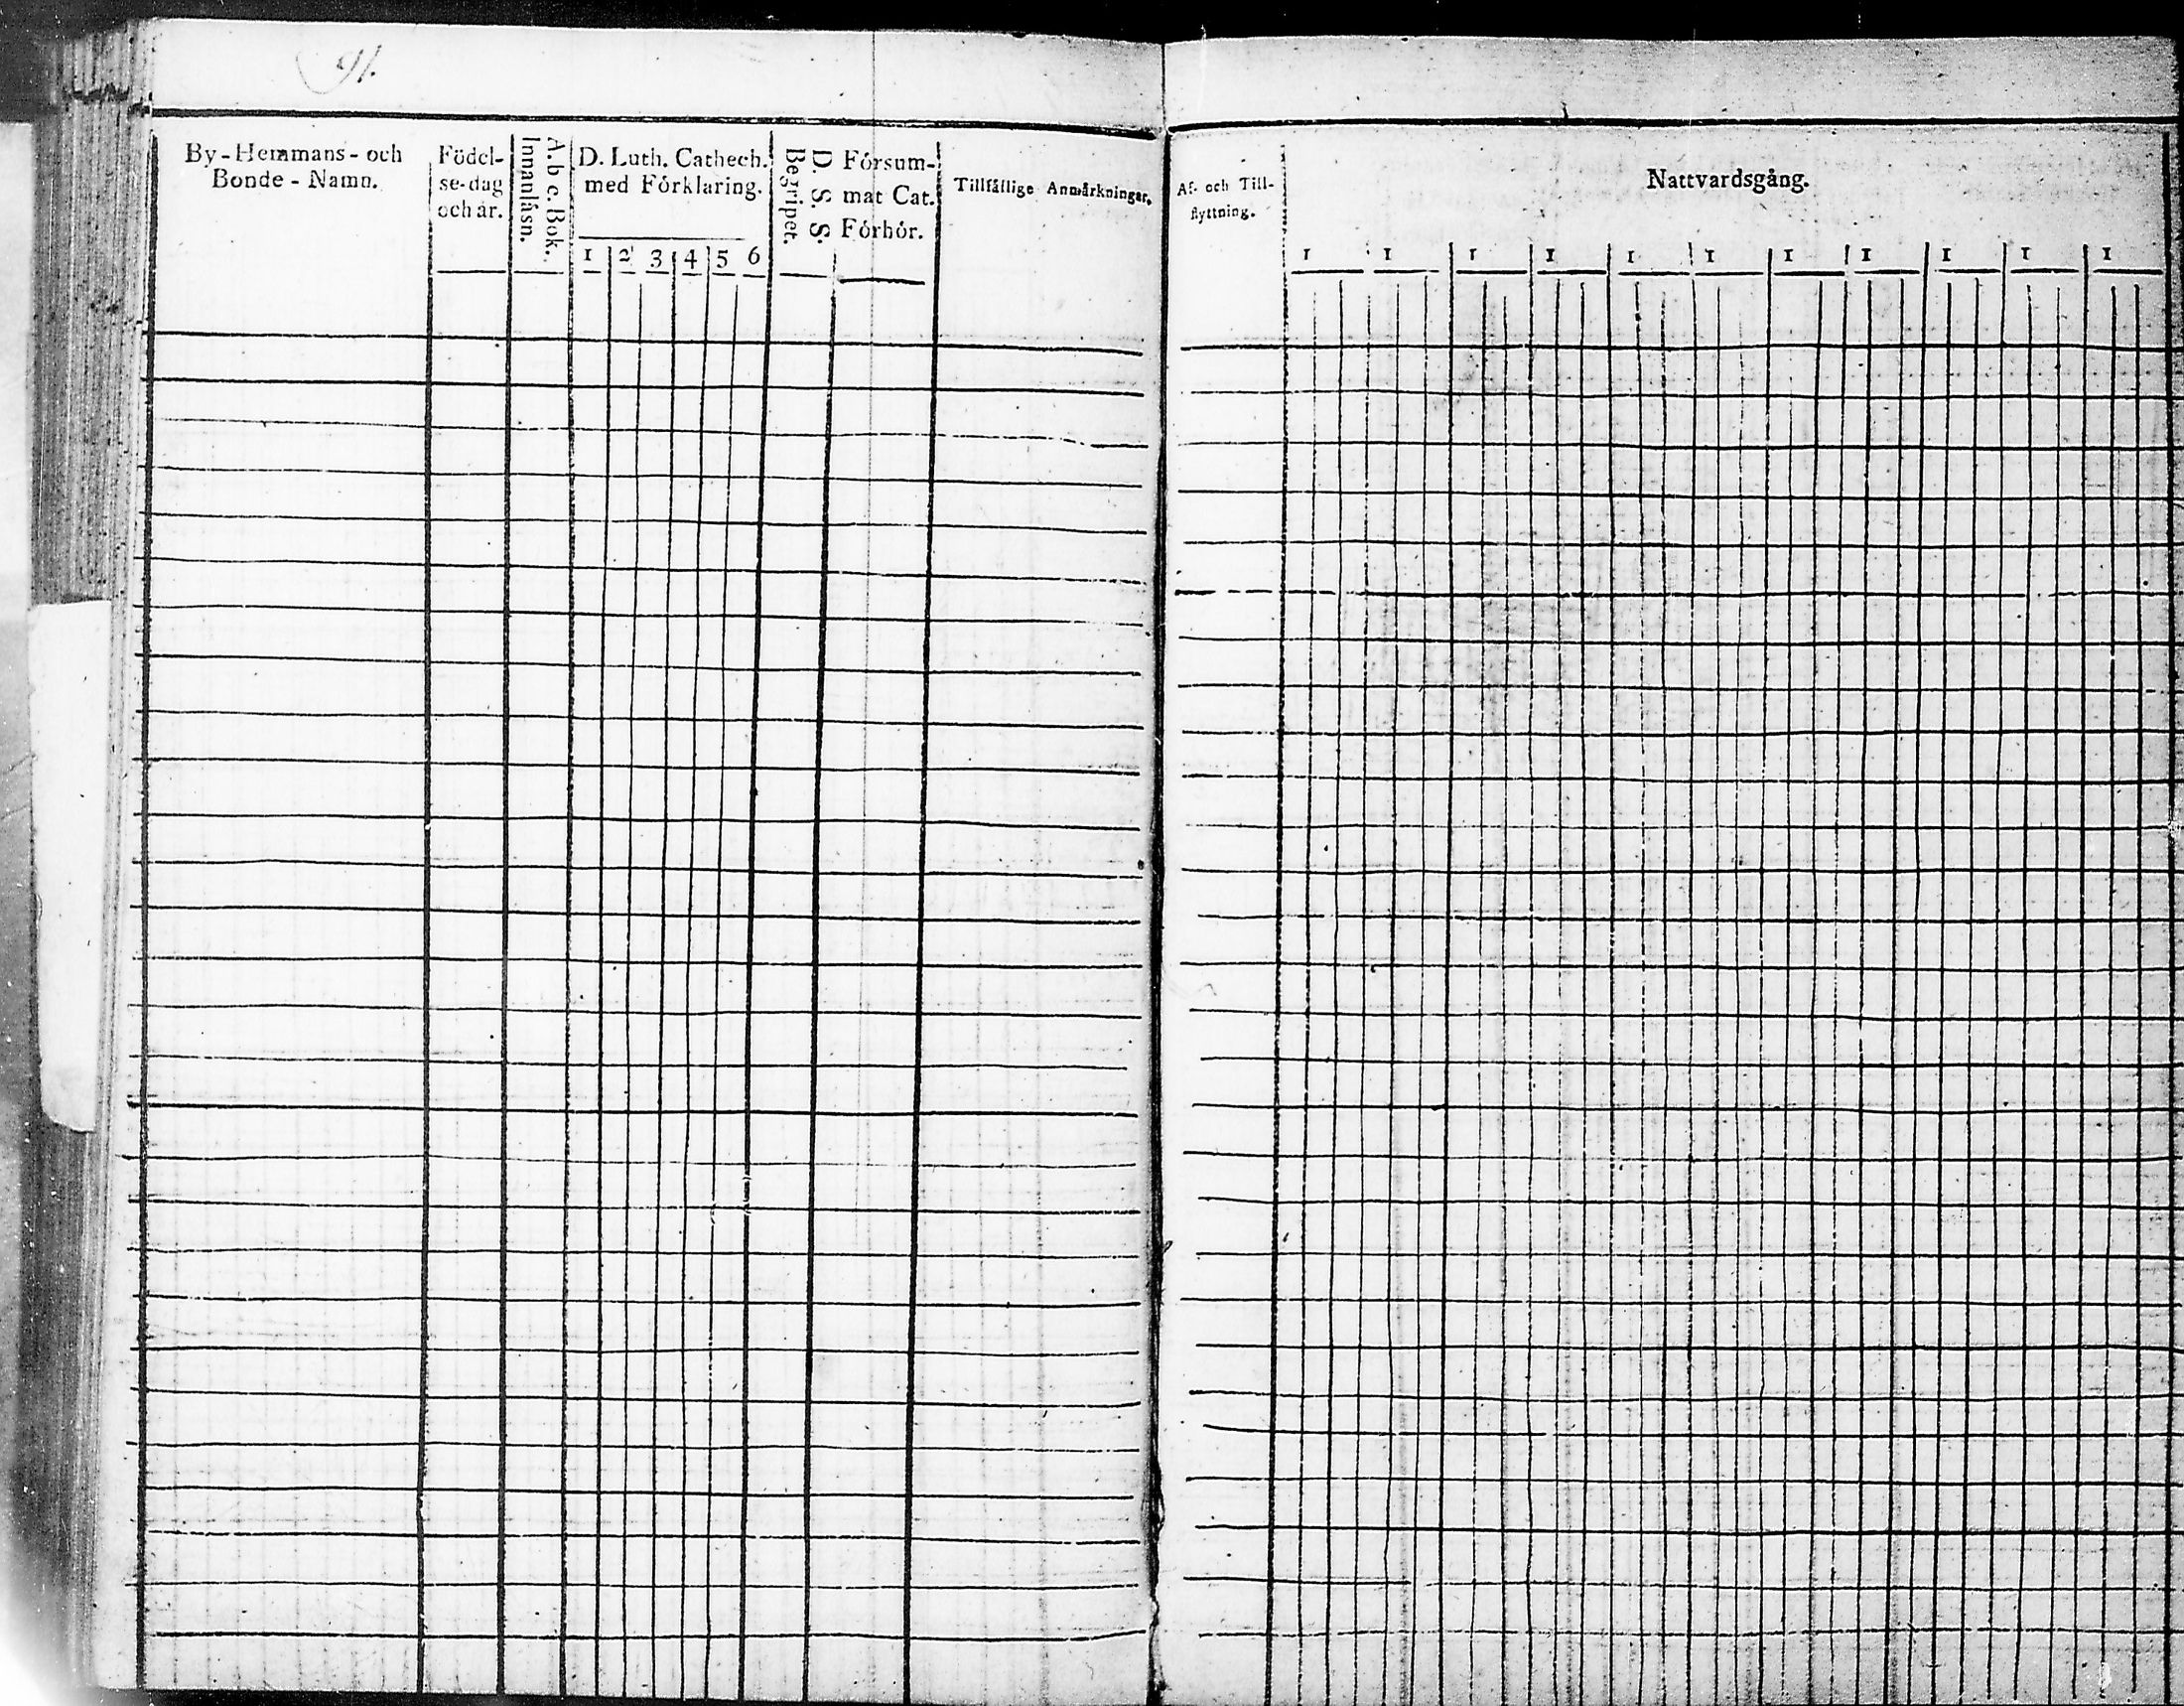 91.
By-Hemmans-och
Bonde-Namn.
Födel-
se-dag
och år.
A. b c. Bok.
Innanläsn.
D. Luth. Cathech.
med Förklaring.
1 2 3 4 5 6
D. S. S.
Begripet.
Försum-
mat Cat.
Förhör.
Tillfällige Anmärkningar.
Af- och Till-
flyttning.
Nattvardsgång.
1 1 1 1 1 1 1 1 1 1 1